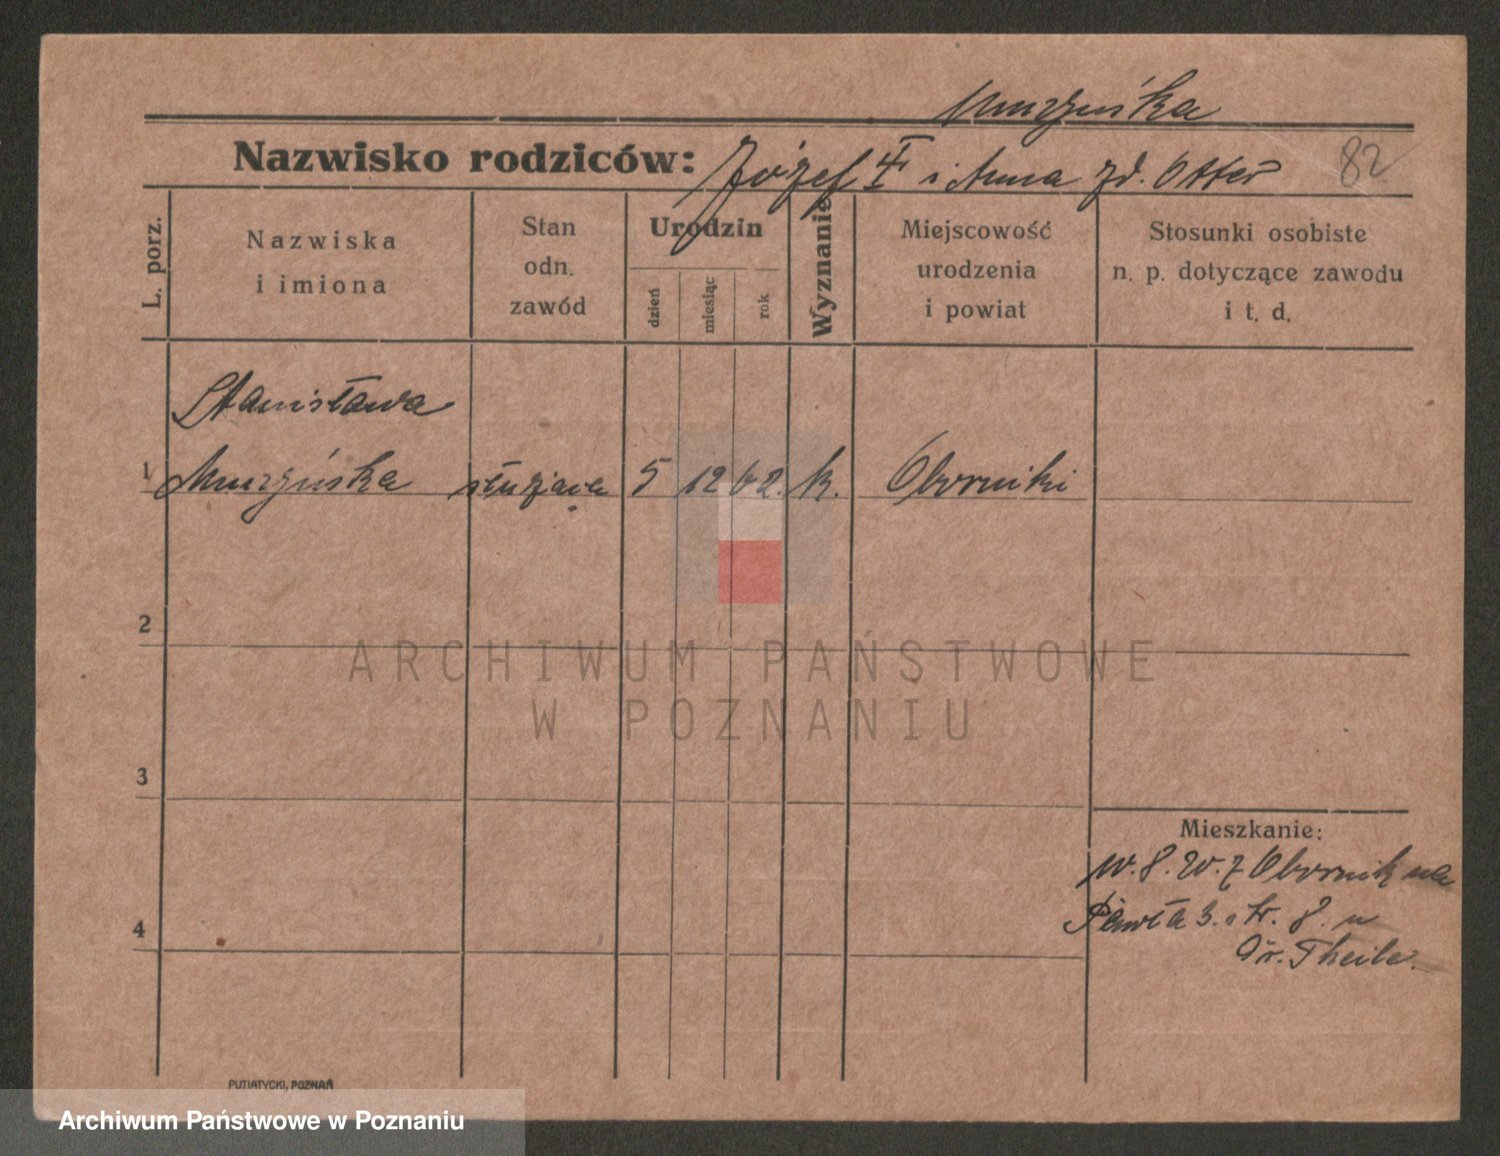 Murzyńska
Nazwisko rodziców: Józef i Anna zd. Otter 82
L. porz.
Nazwiska
i imiona
Stan
odn.
zawód
Urodzin
dzień
miesiąc
rok
Wyznanie
Miejscowość
urodzenia
i powiat
Stosunki osobiste
n. p. dotyczące zawodu
i t. d.
Stanisława
1 Murzyńska służąca 5 12 02. k. Oborniki
2
ARCHIWUM PAŃSTWOWE
W POZNANIU
3
Mieszkanie:
z Obornik na
Pawła 3. 8. u
4
Dr. Theile.
PUTIATYCKI, POZNAŃ
Archiwum Państwowe w Poznaniu